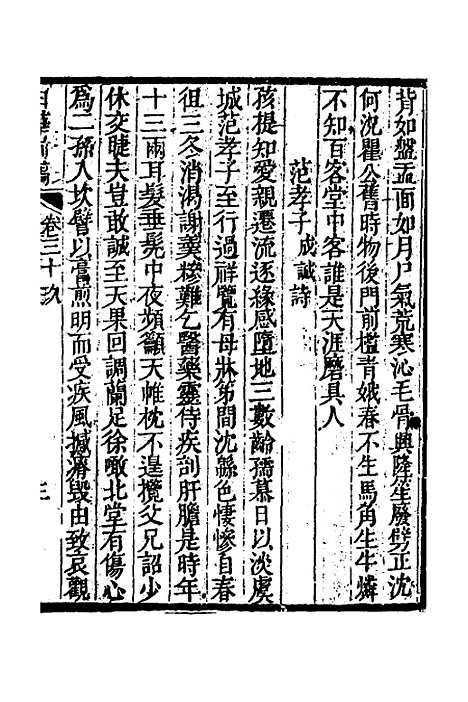 背如盤盂面如月尸氣荒寒沁毛骨興隆笙廢劈正沈
何況瞿公舊時物後門前檻青娥春不生馬角生牛燐
不知百客堂中客誰是天涯磨具人
范孝子成誠詩
孩提知愛親遷流逐緣感墮地三數齡孺慕日以淡虞
城范孝子至行過祥覽有母牀第間沈緜色悽慘自春
徂三冬消渴謝羹糝難乞醫藥靈侍疾刲肝膽是時年
十三兩耳髮垂髧中夜頻籲天帷枕不遑攬父兄詔少
休交睫夫豈敢誠至天果回調蘭足徐噉北堂有傷心
為二孫人坎譬以膏煎明而受疾風撼瘠毀由致哀觀
卷三十玖
三